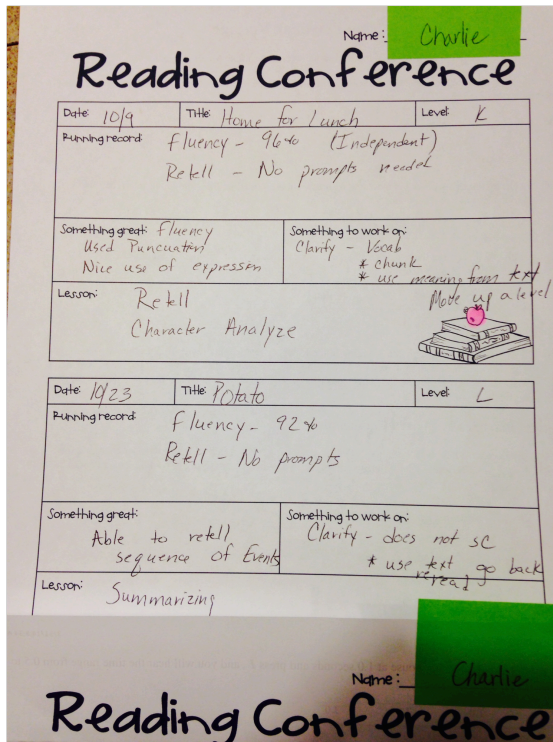 Name: Charlie
Reading Conference
Date: 10/9 Title: Home for Lunch Level: K
Running record: Fluency - 96% (Independent)
Retell - No prompts needed
Something great: Fluency
Used Puncuation
Nice use of expression
Something to work on:
Clarify - Vocab
* chunk
* use meaning from text
Lesson: Retell
Character Analyze
Move up a level
Date: 10/23 Title: Potato Level: L
Running record: Fluency - 92%
Retell - No prompts
Something great:
Able to retell
sequence of Events
Something to work on:
Clarify - does not sc
* use text go back
reread
Lesson: Summarizing
Name: Charlie
Reading Conference